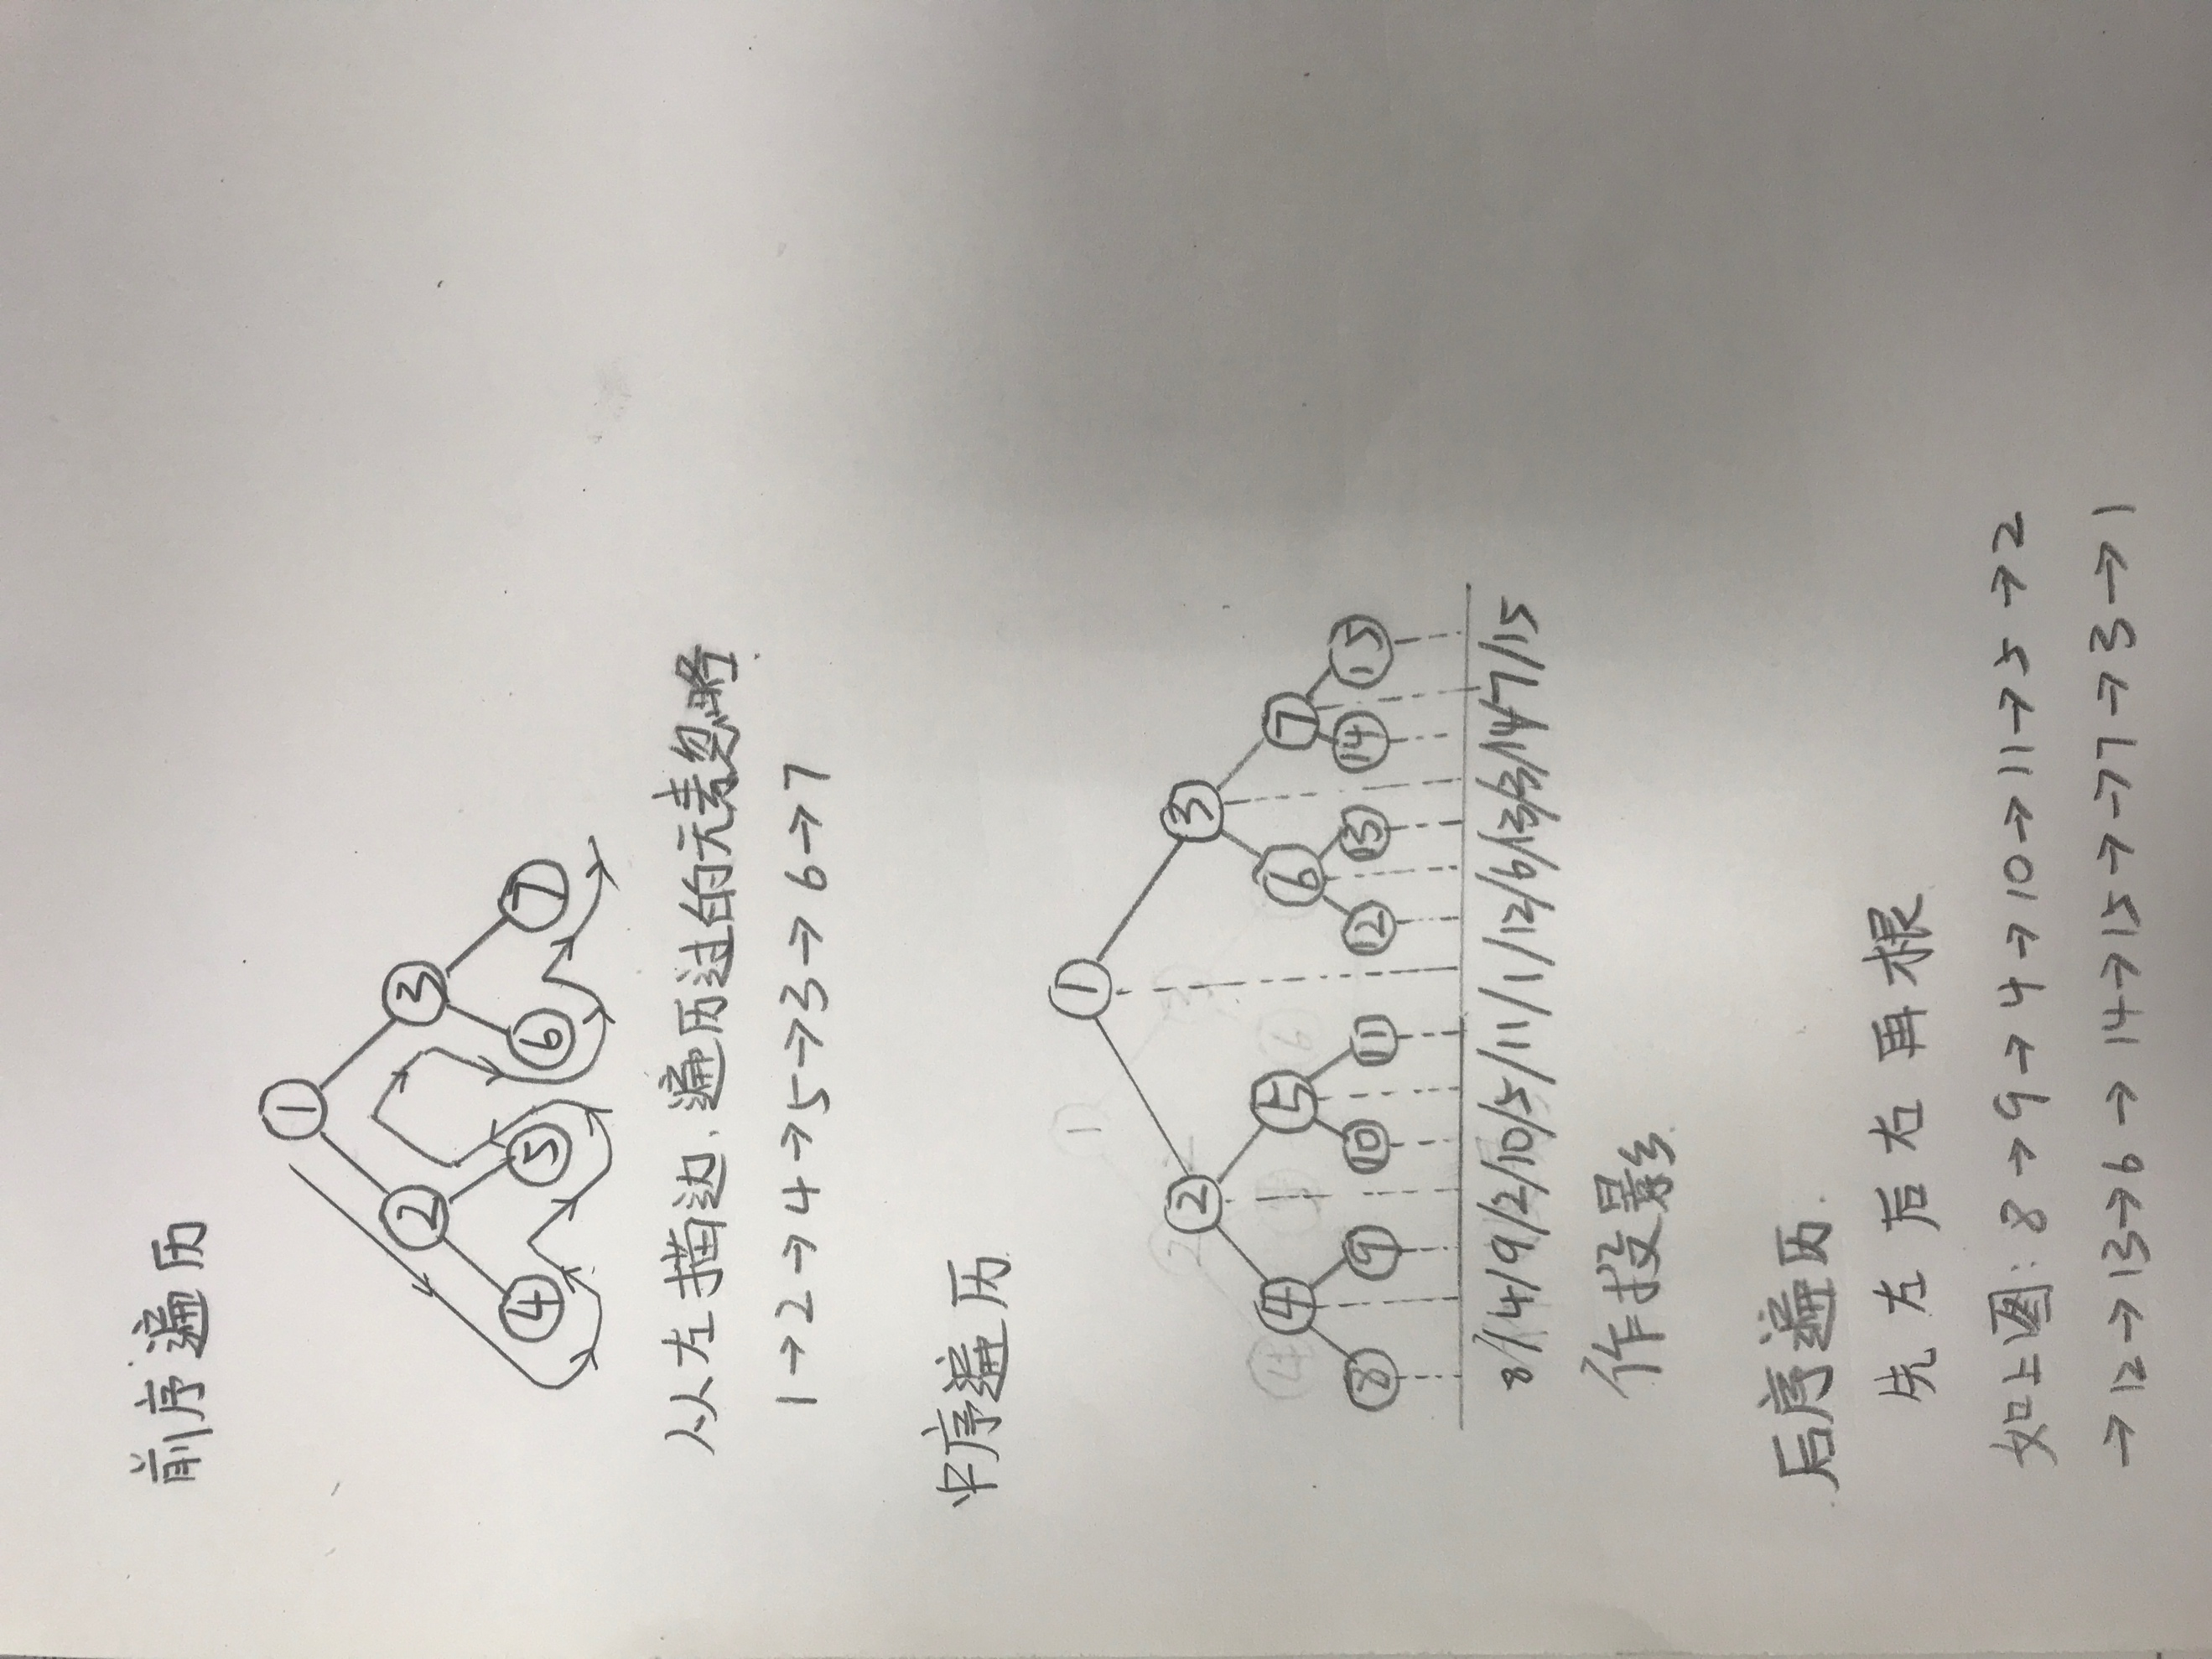 前序遍历
1
2 3
4 5 6 7
从左描边、遍历过的元素忽略
1→2→4→5→3→6→7
中序遍历
1
2 3
4 5 6 7
8 9 10 11 12 13 14 15
8/4/9/2/10/5/11/1/12/6/13/3/14/7/15
作投影
后序遍历
先左后右再根
如上图:8→9→4→10→11→5→2
→12→13→6→14→15→7→3→1